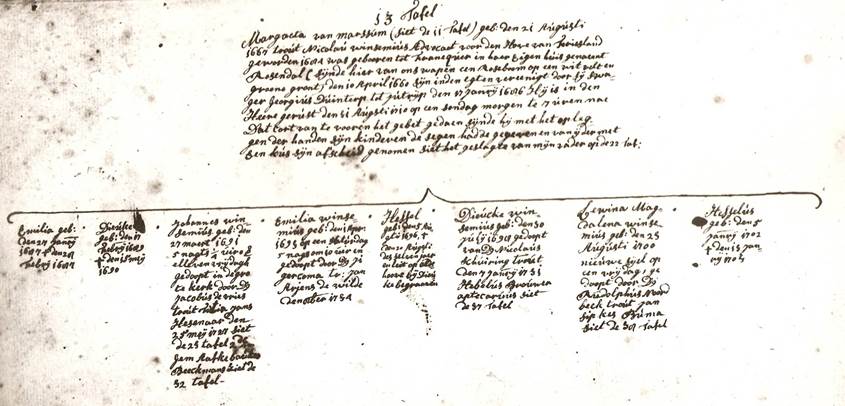 13 Tafel
Margareta van marssum (siet de 11 Tafel) geb: den 21 Augusti
1667 trout Nicolaus winsemius Advocaat voor den Hove van Friesland
geworden 1684 was gebooren tot Franequer in haer Eigen huis genaemt
Rosendal (synde hier van ons wapen een Roseboom op een wit velt en
groene gront) den 10 April 1660 syn in den Egten verenigt door sy swa-
ger Georgius Duinterp tot jutryp den 17 janry 1686 Hy is in den
Heere gerust den 31 Augusti 1710 op een sondag morgen te 7 uiren nae
Dat kort van te vooren het gebet gedaen synde hy met het op leg-
gen der handen syn kinderen de segen hadde gegeven en van yder met
Een kus syn afscheid genomen siet het geslagte van myn vader op de 22 taf:
Emilia geb:
den 27 janry
1687 † den 28
febry 1687
Dieucke
geb: den 17
febry 1689
† den 15 mey
1690
Johannes win
semius geb: den
27 maert 1691
5 nagts
ellf en vrydagh
gedoopt in de gro
te kerk door Dy
Jacobus de vries
trout
Hesenaar Den
25 mey 1727 siet
de 25 tafel
Jem Aafke
Beeckmans siet de
32 tafel
Emilia winse-
mius geb: den
1693 op een saturdag
5 nagts om 10 uir en
gedoopt door Dy
gercoma tr: jan
Arjens de wilde
den 1734
Hessel
geb: den
1696 †
den 20 Augusti
des selven jaer
en leit op
hove by Dieu
ke begraven
Dieucke win-
semius geb: den 30
july 1698 gedoopt
van D Nicolaus
Schuiring trout
den 7 janry 1731
Hobbius Brouwer
aptecarius siet
de 37 Tafel
Lewina Mag-
dalena winse-
mius geb: den 25
Augusti 1700
nieuwe styl op
een vrydag ge
doopt door Dy
Rudolphus Noord
beek trout jan
sipkes Buma
siet de 39 tafel
Hesselus
geb: den 5
janry 1702
† den 13 jan
ry 1703